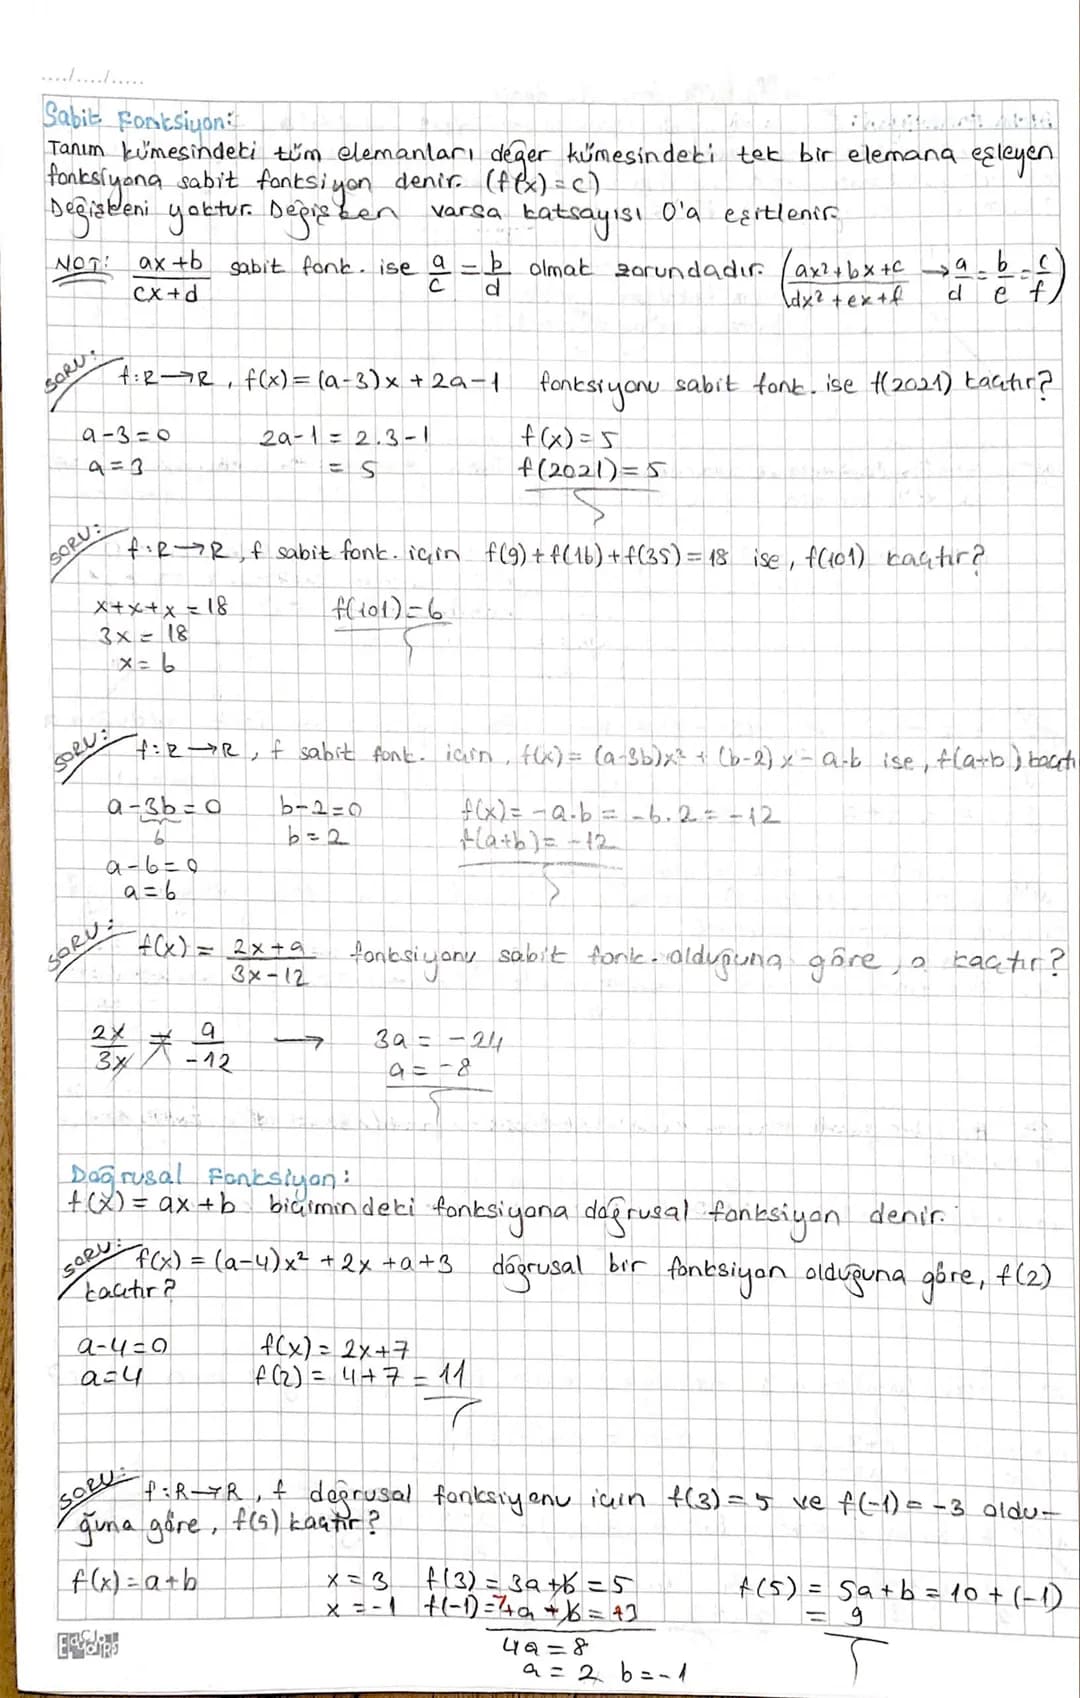 ..../..../.....
Sabit Fonksiyon:
Tanım kümesindeki tüm elemanları değer kümesindeki tek bir elemana eşleyen
fonksiyona sabit fonksiyon denir. (f(x)=c)
Değişkeni yoktur. Değişken varsa katsayısı 0'a eşitlenir.
NOT: (ax+b)/(cx+d) sabit fonk. ise a/c = b/d olmak zorundadır. ((ax²+bx+c)/(dx²+ex+f) → a/d = b/e = c/f)
SORU: f:R→R, f(x)=(a-3)x+2a-1 fonksiyonu sabit fonk. ise f(2021) kaçtır?
a-3=0 2a-1=2.3-1 f(x)=5
a=3 =5 f(2021)=5
SORU: f:R→R, f sabit fonk. için f(9)+f(16)+f(35)=18 ise, f(101) kaçtır?
x+x+x=18 f(101)=6
3x=18
x=6
SORU: f:R→R, f sabit fonk. için, f(x)=(a-3b)x²+(b-2)x-a.b ise, f(a+b) kaçtı
a-3b=0 b-2=0 f(x)=-a.b=-6.2=-12
6 b=2 f(a+b)=-12
a-6=0
a=6
SORU: f(x)=(2x+a)/(3x-12) fonksiyonu sabit fonk. olduğuna göre, a kaçtır?
2x/3x = a/-12 → 3a=-24
a=-8
Doğrusal Fonksiyon:
f(x)=ax+b biçimindeki fonksiyona doğrusal fonksiyon denir.
SORU: f(x)=(a-4)x²+2x+a+3 doğrusal bir fonksiyon olduğuna göre, f(2)
kaçtır?
a-4=0 f(x)=2x+7
a=4 f(2)=4+7=11
SORU: f:R→R, f doğrusal fonksiyonu için f(3)=5 ve f(-1)=-3 oldu-
ğuna göre, f(5) kaçtır?
f(x)=a+b x=3 f(3)=3a+b=5 f(5)=5a+b=10+(-1)
x=-1 f(-1)=+a-b=+3 =9
4a=8
a=2 b=-1